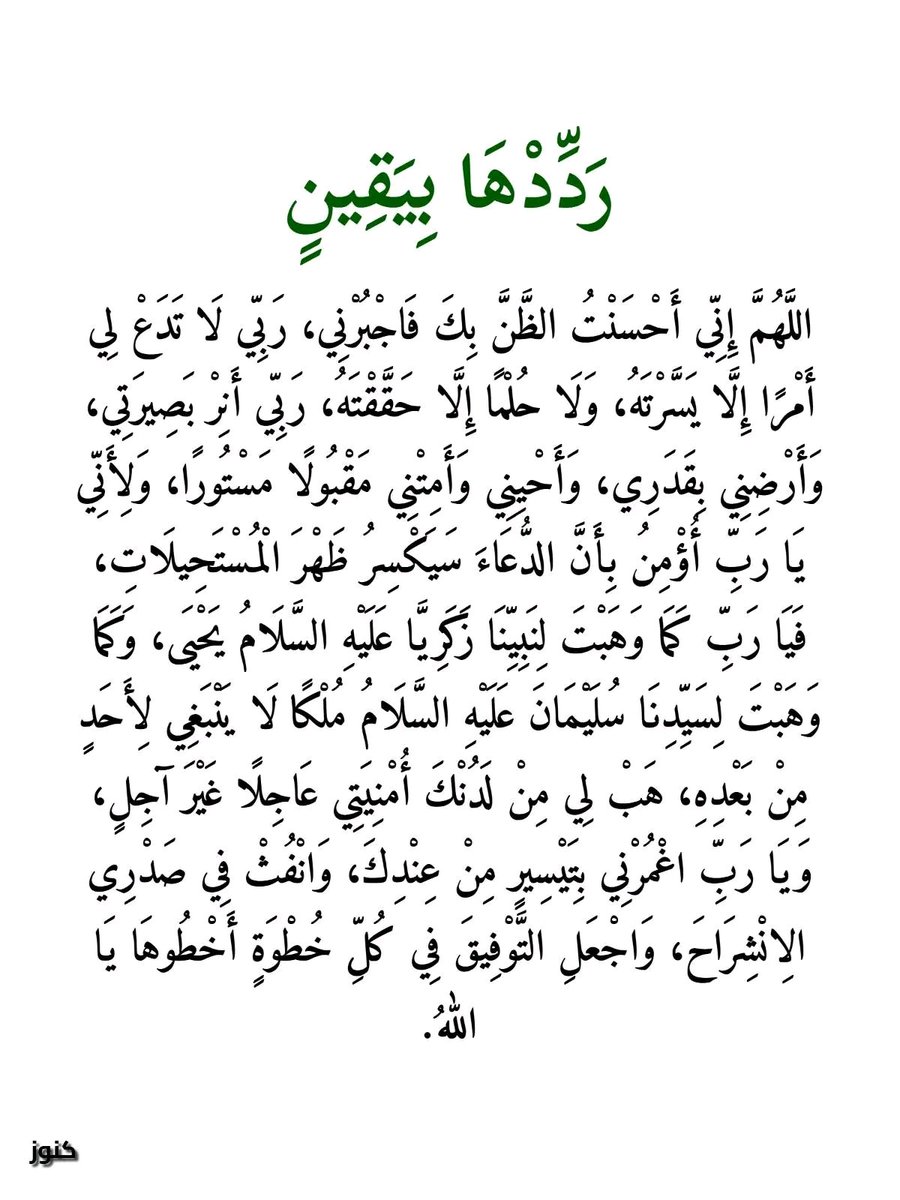 رَدِّدْهَا بِيَقِينٍ
اللَّهُمَّ إِنِّي أَحْسَنْتُ الظَّنَّ بِكَ فَاجْبُرْنِي، رَبِّي لَا تَدَعْ لِي
أَمْرًا إِلَّا يَسَّرْتَهُ، وَلَا حُلْمًا إِلَّا حَقَّقْتَهُ، رَبِّي أَنِرْ بَصِيرَتِي،
وَأَرْضِنِي بِقَدَرِي، وَأَحْيِنِي وَأَمِتْنِي مَقْبُولًا مَسْتُورًا، وَلِأَنِّي
يَا رَبِّ أُؤْمِنُ بِأَنَّ الدُّعَاءَ سَيَكْسِرُ ظَهْرَ الْمُسْتَحِيلَاتِ،
فَيَا رَبِّ كَمَا وَهَبْتَ لِنَبِيِّنَا زَكَرِيَّا عَلَيْهِ السَّلَامُ يَحْيَى، وَكَمَا
وَهَبْتَ لِسَيِّدِنَا سُلَيْمَانَ عَلَيْهِ السَّلَامُ مُلْكًا لَا يَنْبَغِي لِأَحَدٍ
مِنْ بَعْدِهِ، هَبْ لِي مِنْ لَدُنْكَ أُمْنِيَتِي عَاجِلًا غَيْرَ آجِلٍ،
وَيَا رَبِّ اغْمُرْنِي بِتَيْسِيرٍ مِنْ عِنْدِكَ، وَانْفُثْ فِي صَدْرِي
الِانْشِرَاحَ، وَاجْعَلِ التَّوْفِيقَ فِي كُلِّ خُطْوَةٍ أَخْطُوهَا يَا
اللهُ.
كنوز